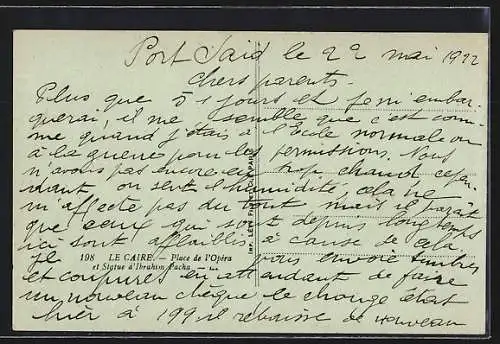 Port Said le 22 mai 1922
Chers parents.
Plus que 5 jours et j'embar-
querai, il me semble que c'est com-
me quand j'étais à l'Ecole normale ou
à la guerre pour les permissions. Nous
n'avons pas encore eu trop chaud cepen-
dant on sent l'humidité, cela ne
m'affecte pas du tout mais il paraît
que ceux qui sont depuis longtemps
ici sont affaiblis à cause de cela.
Je vous envoie timbres
198 LE CAIRE. — Place de l'Opéra
et Statue d'Ibrahim Pacha. — LL
et coupures en attendant de faire
un nouveau chèque le change était
hier à 199 il rebaisse de nouveau